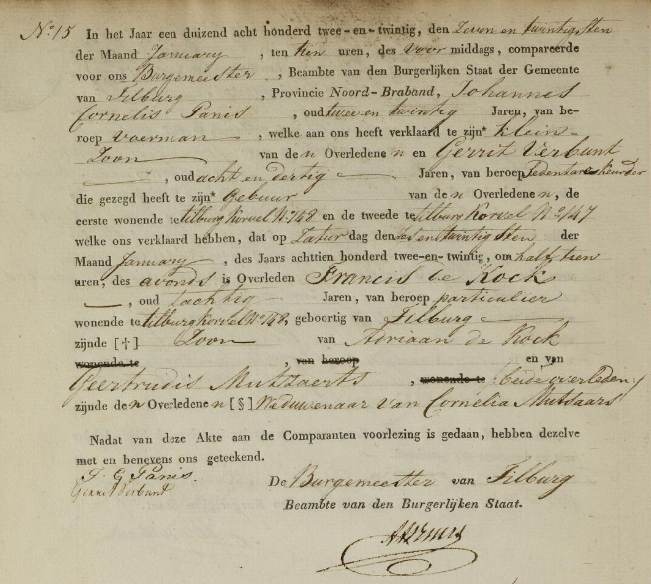 No. 15 In het Jaar een duizend acht honderd twee-en-twintig, den Zeven en twintigsten
der Maand January , ten tien uren, des voor middags, compareerde
voor ons Burgemeester , Beambte van den Burgerlijken Staat der Gemeente
van Tilburg , Provincie Noord-Braband, Johannes
Cornelis Panis , oud twee en twintig Jaren, van be-
roep voerman , welke aan ons heeft verklaard te zijn* klein-
Zoon van den Overledenen en Gerrit Verbunt
, oud acht en dertig Jaren, van beroep
die gezegd heeft te zijn* gebuur van den Overledenen, de
eerste wonende te tilburg Korvel No. 148 en de tweede te tilburg Korvel No. 147
welke ons verklaard hebben, dat op Zatur dag den ses en twintigsten der
Maand January , des Jaars achttien honderd twee-en-twintig, om half tien
uren, des avonds is Overleden Francis de Kock
, oud tachtig Jaren, van beroep particulier
wonende te tilburg korvel No. 148, geboortig van Tilburg
zijnde [†] Zoon van Adriaan de Kock
wonende te , van beroep en van
Geertrudis Mutsaerts , wonende te beide overleden
zijnde den Overledenen [§] Weduwenaar van Cornelia Mutsaars
Nadat van deze Akte aan de Comparanten voorlezing is gedaan, hebben dezelve
met en benevens ons geteekend.
J. C. Panis.
Gerrit Verbunt
De Burgemeester van Tilburg
Beambte van den Burgerlijken Staat.